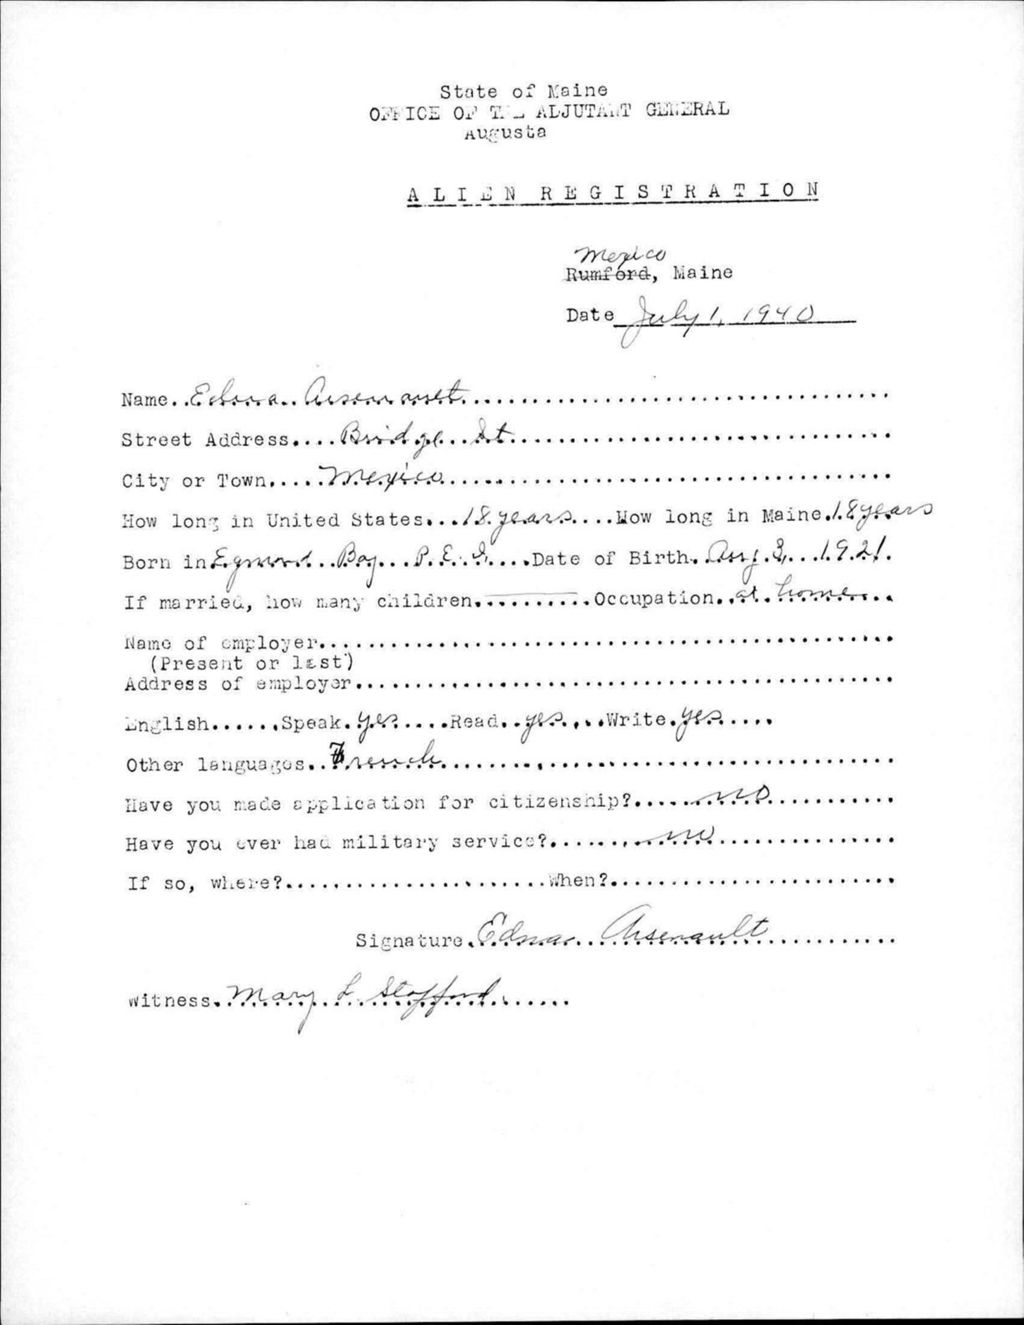 State of Maine
OFFICE OF THE ADJUTANT GENERAL
Augusta
ALIEN REGISTRATION
Mexico
Rumford, Maine
Date July 1, 1940
Name..Edna..Arsenault......
Street Address....Bridge...St......
City or Town.....Mexico......
How long in United States...18 years....How long in Maine.18 years
Born in Egmond..Bay...P.E.I....Date of Birth..Aug. 3,...1921.
If married, how many children..........Occupation..at.home....
Name of employer......
(Present or last)
Address of employer......
English......Speak.yes....Read..yes....Write.yes.....
Other languages..French......
Have you made application for citizenship?......no......
Have you ever had military service?......no......
If so, where?......When?......
Signature.Edna..Arsenault......
Witness.Mary L. Stafford......